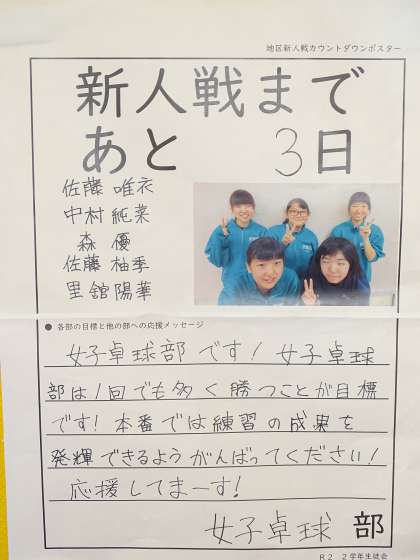 地区新人戦カウントダウンポスター
新人戦まで
あと 3日
佐藤 唯衣
中村 純菜
森 優
佐藤 柚季
里舘 陽華
● 各部の目標と他の部への応援メッセージ
女子卓球部です！女子卓球
部は1回でも多く勝つことが目標
です！本番では練習の成果を
発揮できるようがんばってください！
応援してまーす！
女子卓球 部
R2 2学年生徒会